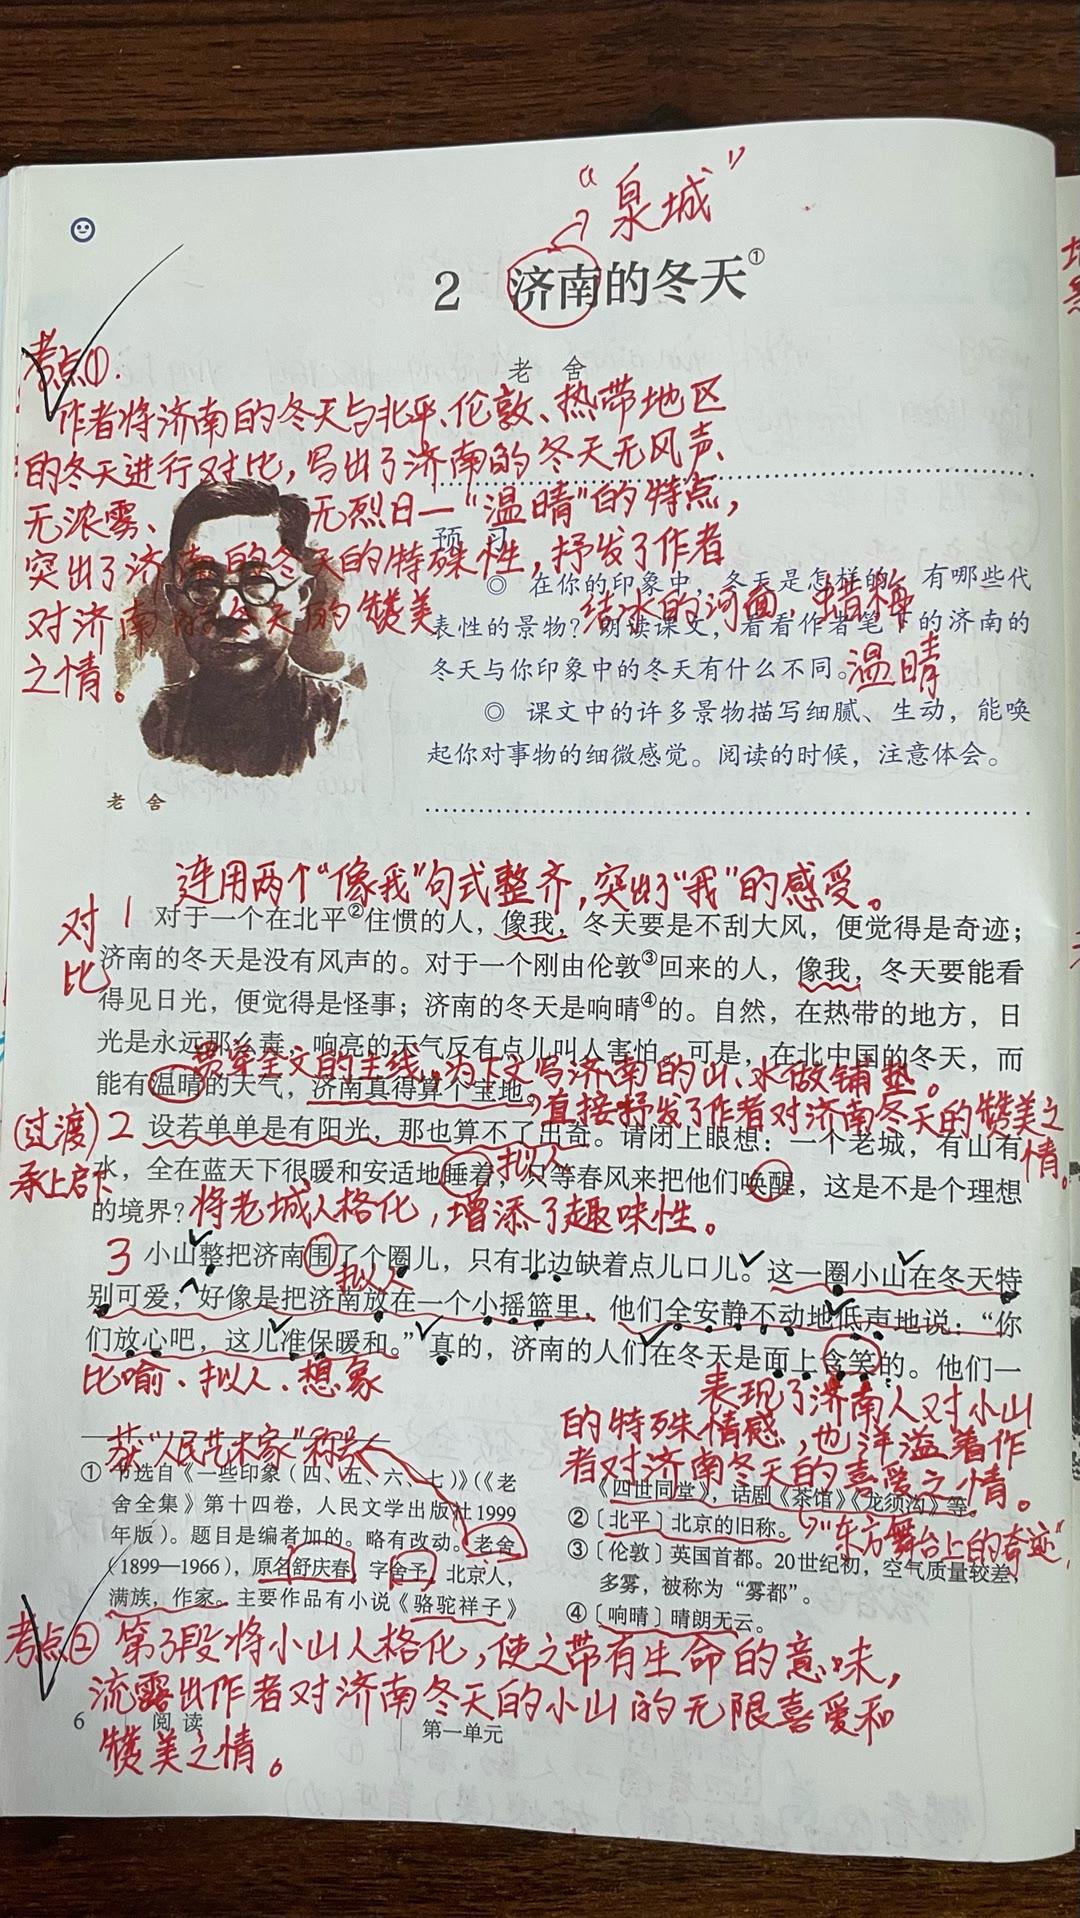 “泉城”
2 济南的冬天①
老 舍
考点①.
作者将济南的冬天与北平、伦敦、热带地区
的冬天进行对比，写出了济南的冬天无风声、
无浓雾、无烈日—“温晴”的特点，
突出了济南的冬天的特殊性，抒发了作者
对济南的冬天的赞美
之情。
老 舍
预 习
◎ 在你的印象中，冬天是怎样的，有哪些代
结冰的河面，蜡梅
表性的景物？朗读课文，看看作者笔下的济南的
冬天与你印象中的冬天有什么不同。
温晴
◎ 课文中的许多景物描写细腻、生动，能唤
起你对事物的细微感觉。阅读的时候，注意体会。
连用两个“像我”句式整齐，突出了“我”的感受。
对比
1 对于一个在北平②住惯的人，像我，冬天要是不刮大风，便觉得是奇迹；
济南的冬天是没有风声的。对于一个刚由伦敦③回来的人，像我，冬天要能看
得见日光，便觉得是怪事；济南的冬天是响晴④的。自然，在热带的地方，日
光是永远那么毒，响亮的天气反有点儿叫人害怕。可是，在北中国的冬天，而
贯穿全文的主线，为下文写济南的山、水做铺垫。
能有温晴的天气，济南真得算个宝地。
直接抒发了作者对济南冬天的赞美之
情。
(过渡)
承上启下
2 设若单单是有阳光，那也算不了出奇。请闭上眼想：一个老城，有山有
水，全在蓝天下很暖和安适地睡着，只等春风来把他们唤醒，这是不是个理想
拟人
的境界？
将老城人格化，增添了趣味性。
3 小山整把济南围了个圈儿，只有北边缺着点儿口儿。这一圈小山在冬天特
拟人
别可爱，好像是把济南放在一个小摇篮里，他们全安静不动地低声地说：“你
们放心吧，这儿准保暖和。”真的，济南的人们在冬天是面上含笑的。他们一
比喻、拟人、想象
表现了济南人对小山
的特殊情感，也洋溢着作
者对济南冬天的喜爱之情。
获“人民艺术家”称号
① 节选自《一些印象（四、五、六、七）》（《老
舍全集》第十四卷，人民文学出版社1999
年版）。题目是编者加的。略有改动。老舍
（1899—1966），原名舒庆春，字舍予，北京人，
满族，作家。主要作品有小说《骆驼祥子》
《四世同堂》，话剧《茶馆》《龙须沟》等。
“东方舞台上的奇迹”
②〔北平〕北京的旧称。
③〔伦敦〕英国首都。20世纪初，空气质量较差，
多雾，被称为“雾都”。
④〔响晴〕晴朗无云。
考点② 第3段将小山人格化，使之带有生命的意味，
流露出作者对济南冬天的小山的无限喜爱和
赞美之情。
6 阅 读
第一单元